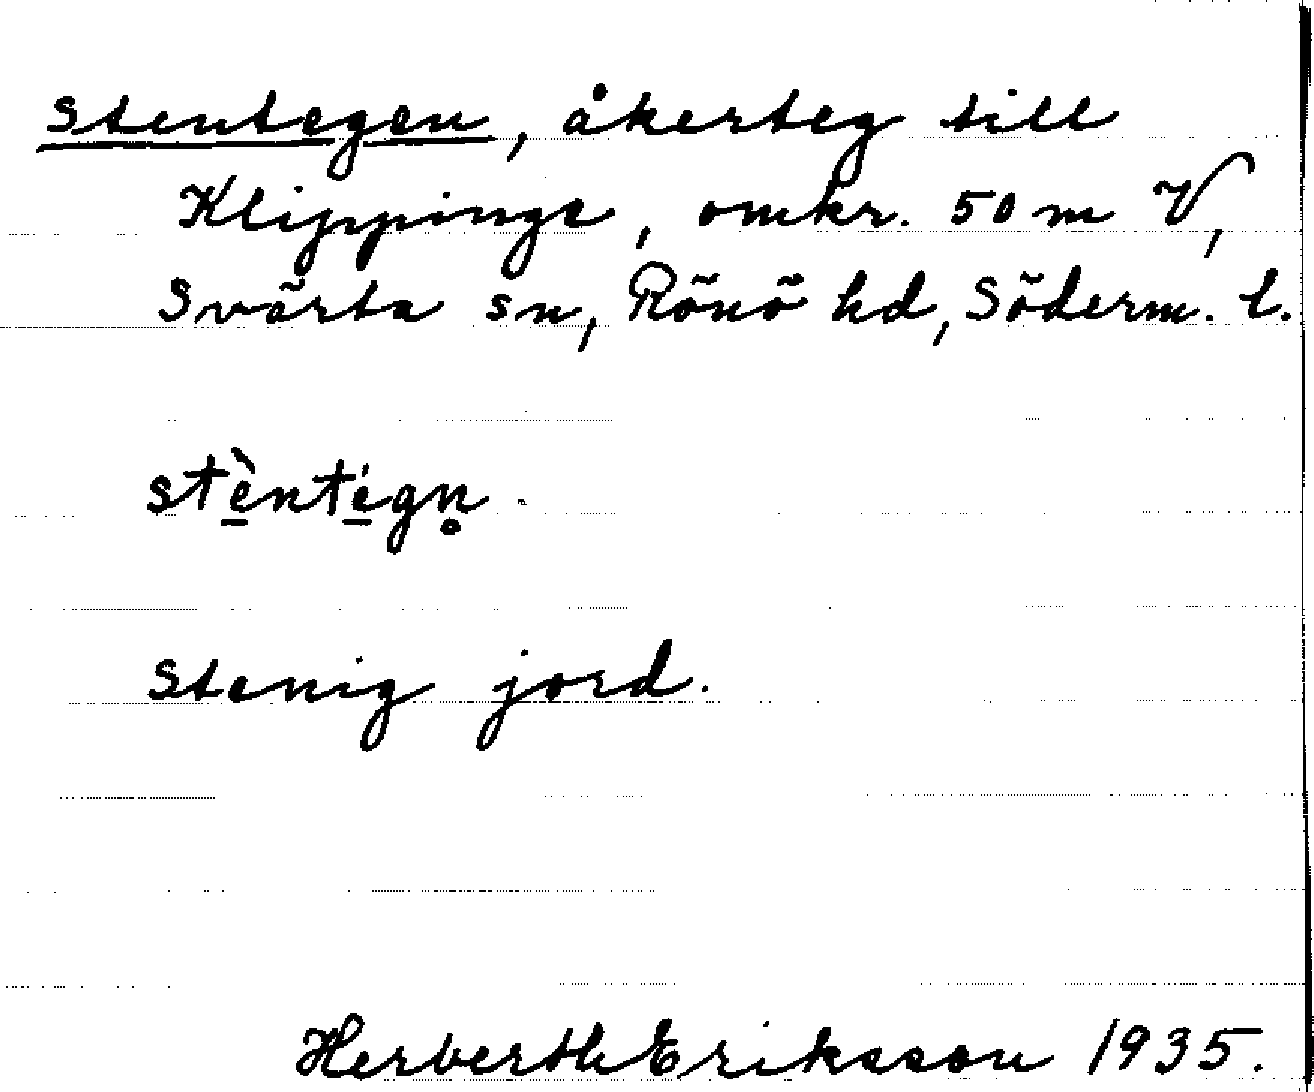 Stentegen, åkerteg till
Klippinge, omkr. 50 m V,
Svärta sn, Rönö hd, Söderm. l.
stè̱nté̱gn̥.
Stenig jord.
Herberth Eriksson 1935.